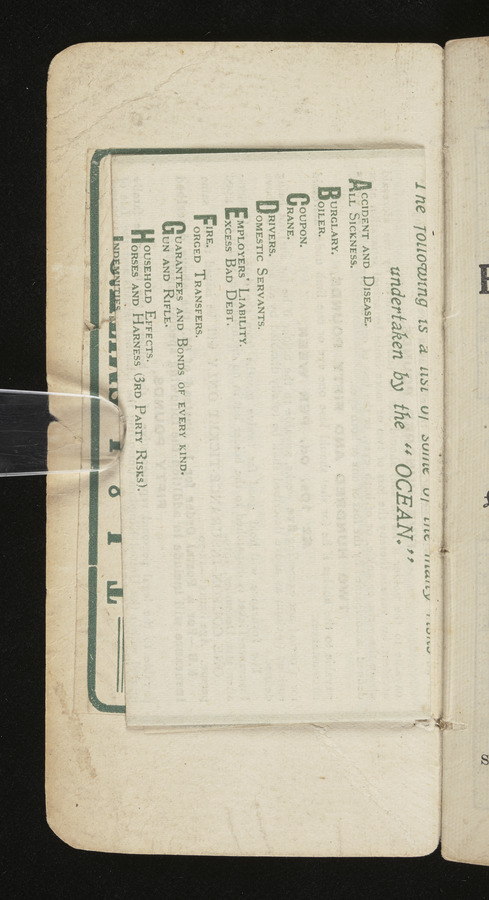 The following is a list of some of the many risks
undertaken by the "OCEAN."
ACCIDENT AND DISEASE.
ALL SICKNESS.
BURGLARY.
BOILER.
COUPON.
CRANE.
DRIVERS.
DOMESTIC SERVANTS.
EMPLOYERS' LIABILITY.
EXCESS BAD DEBT.
FIRE.
FORGED TRANSFERS.
GUARANTEES AND BONDS OF EVERY KIND.
GUN AND RIFLE.
HOUSEHOLD EFFECTS.
HORSES AND HARNESS (3RD PARTY RISKS).
INDEMNITIES